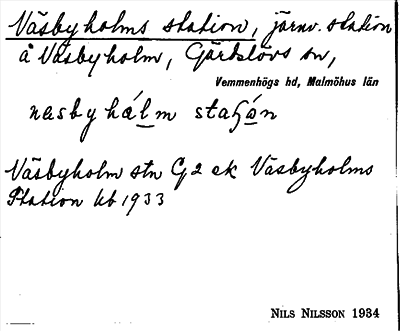 Väsbyholms station, järnv. station
å Väsbyholm, Gärdslövs sn,
Vemmenhögs hd, Malmöhus län
Väsbyholm stn G2 ek Väsbyholms
Station kb 1933
NILS NILSSON 1934